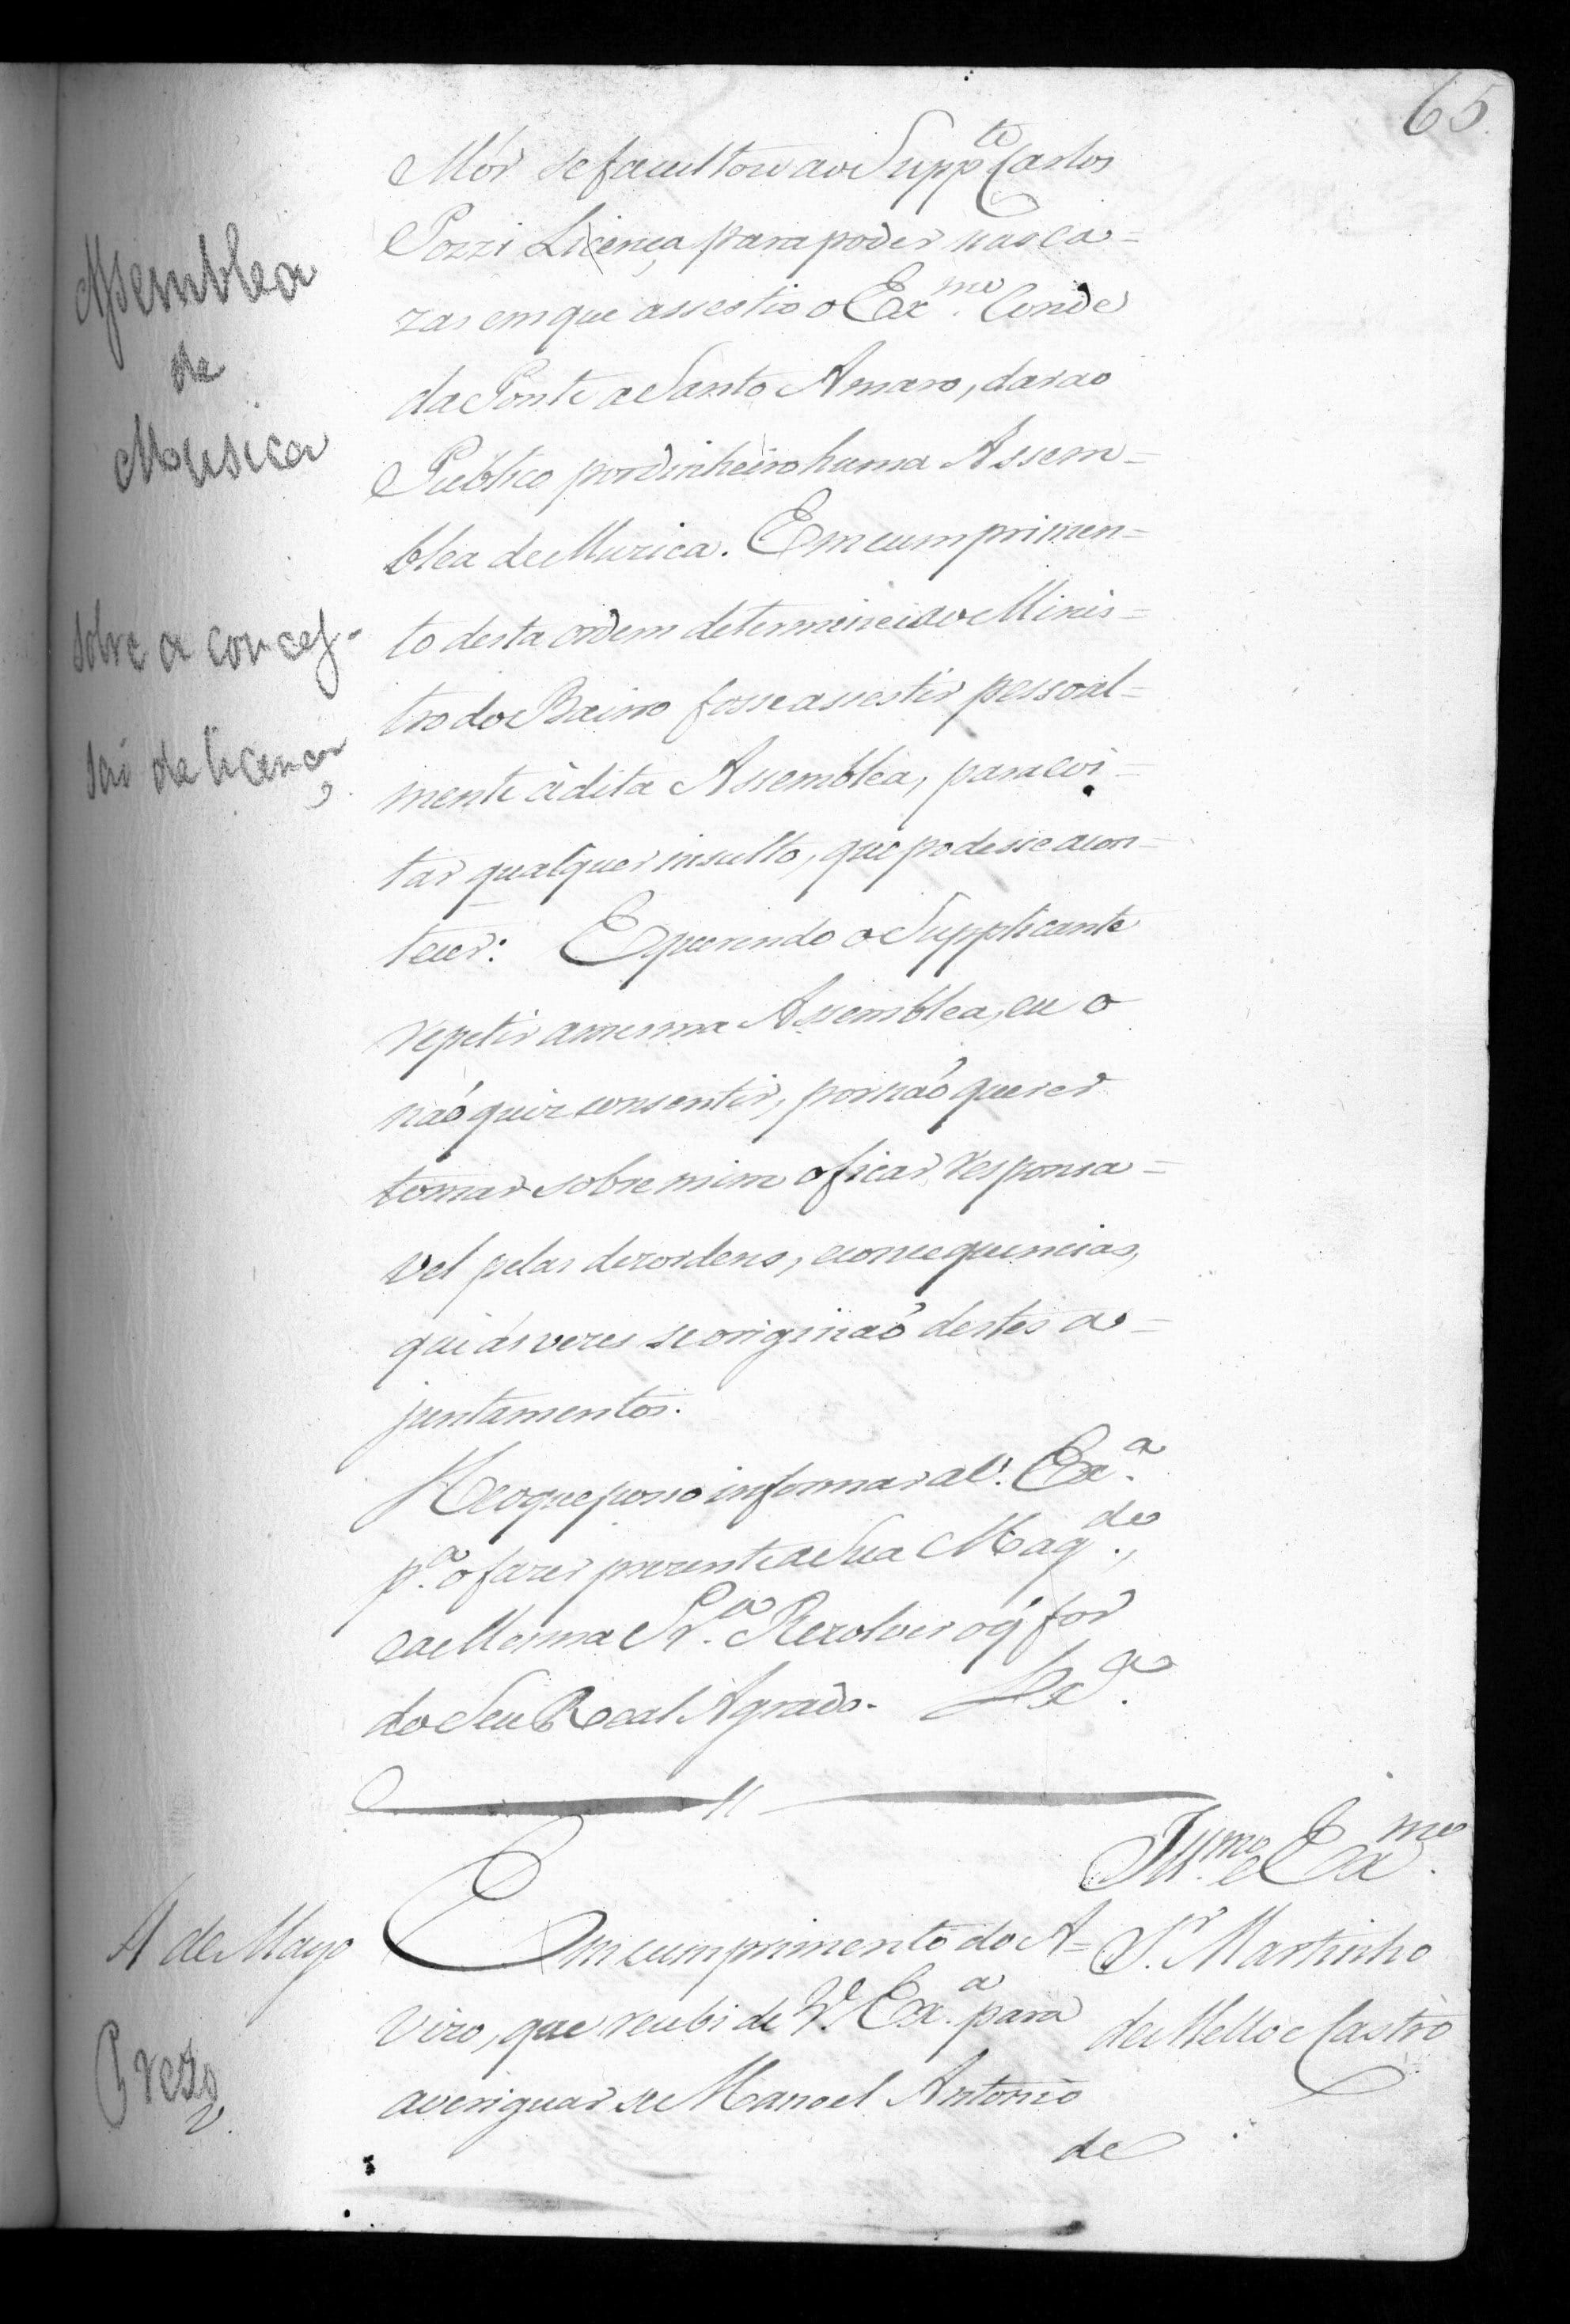 65
Mór se facultou ao Supp.te Carlos
Pozzi Licença para poder nas ca=
zas em que assestio o Ex.mo Conde
da Ponte a Santo Amaro, dar ao
Publico por dinheiro huma Assem=
blea de Muzica. Em cumprimen=
to desta ordem determinei ao Minis=
tro do Bairro fosse assestir pessoal=
mente á dita Assemblea, para evi=
tar qualquer insulto, que podesse acon=
tecer: E querendo o Supplicante
repetir a mesma Assemblea, eu o
naõ quiz consentir, por naõ querer
tomar sobre mim o ficar responsa=
vel pelas dezordens, e consequencias,
que ás vezes se originaõ destes a=
juntamentos.
He o que posso informar a V. Ex.a
p.a o fazer prezente a Sua Mag.de,
e a Mesma Sr.a Rezolver o q̃ for
do Seu Real Agrado.
Assemblea
de
Mousica
sobre a conces-
saõ de licença
Ill.mo e Ex.mo
Sr. Martinho
de Mello e Castro
4 de Mayo
Prezo
Em cumprimento do A=
vizo, que recebi de V. Ex.a para
averiguar se Manoel Antonio
de